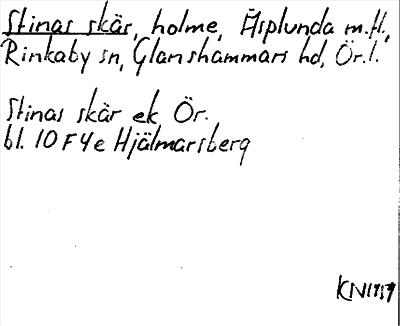 Stinas skär, holme, Äsplunda m.fl.,
Rinkaby sn, Glanshammars hd, Ör.l.
Stinas skär ek Ör.
bl. 10 F 4 e Hjälmarsberg